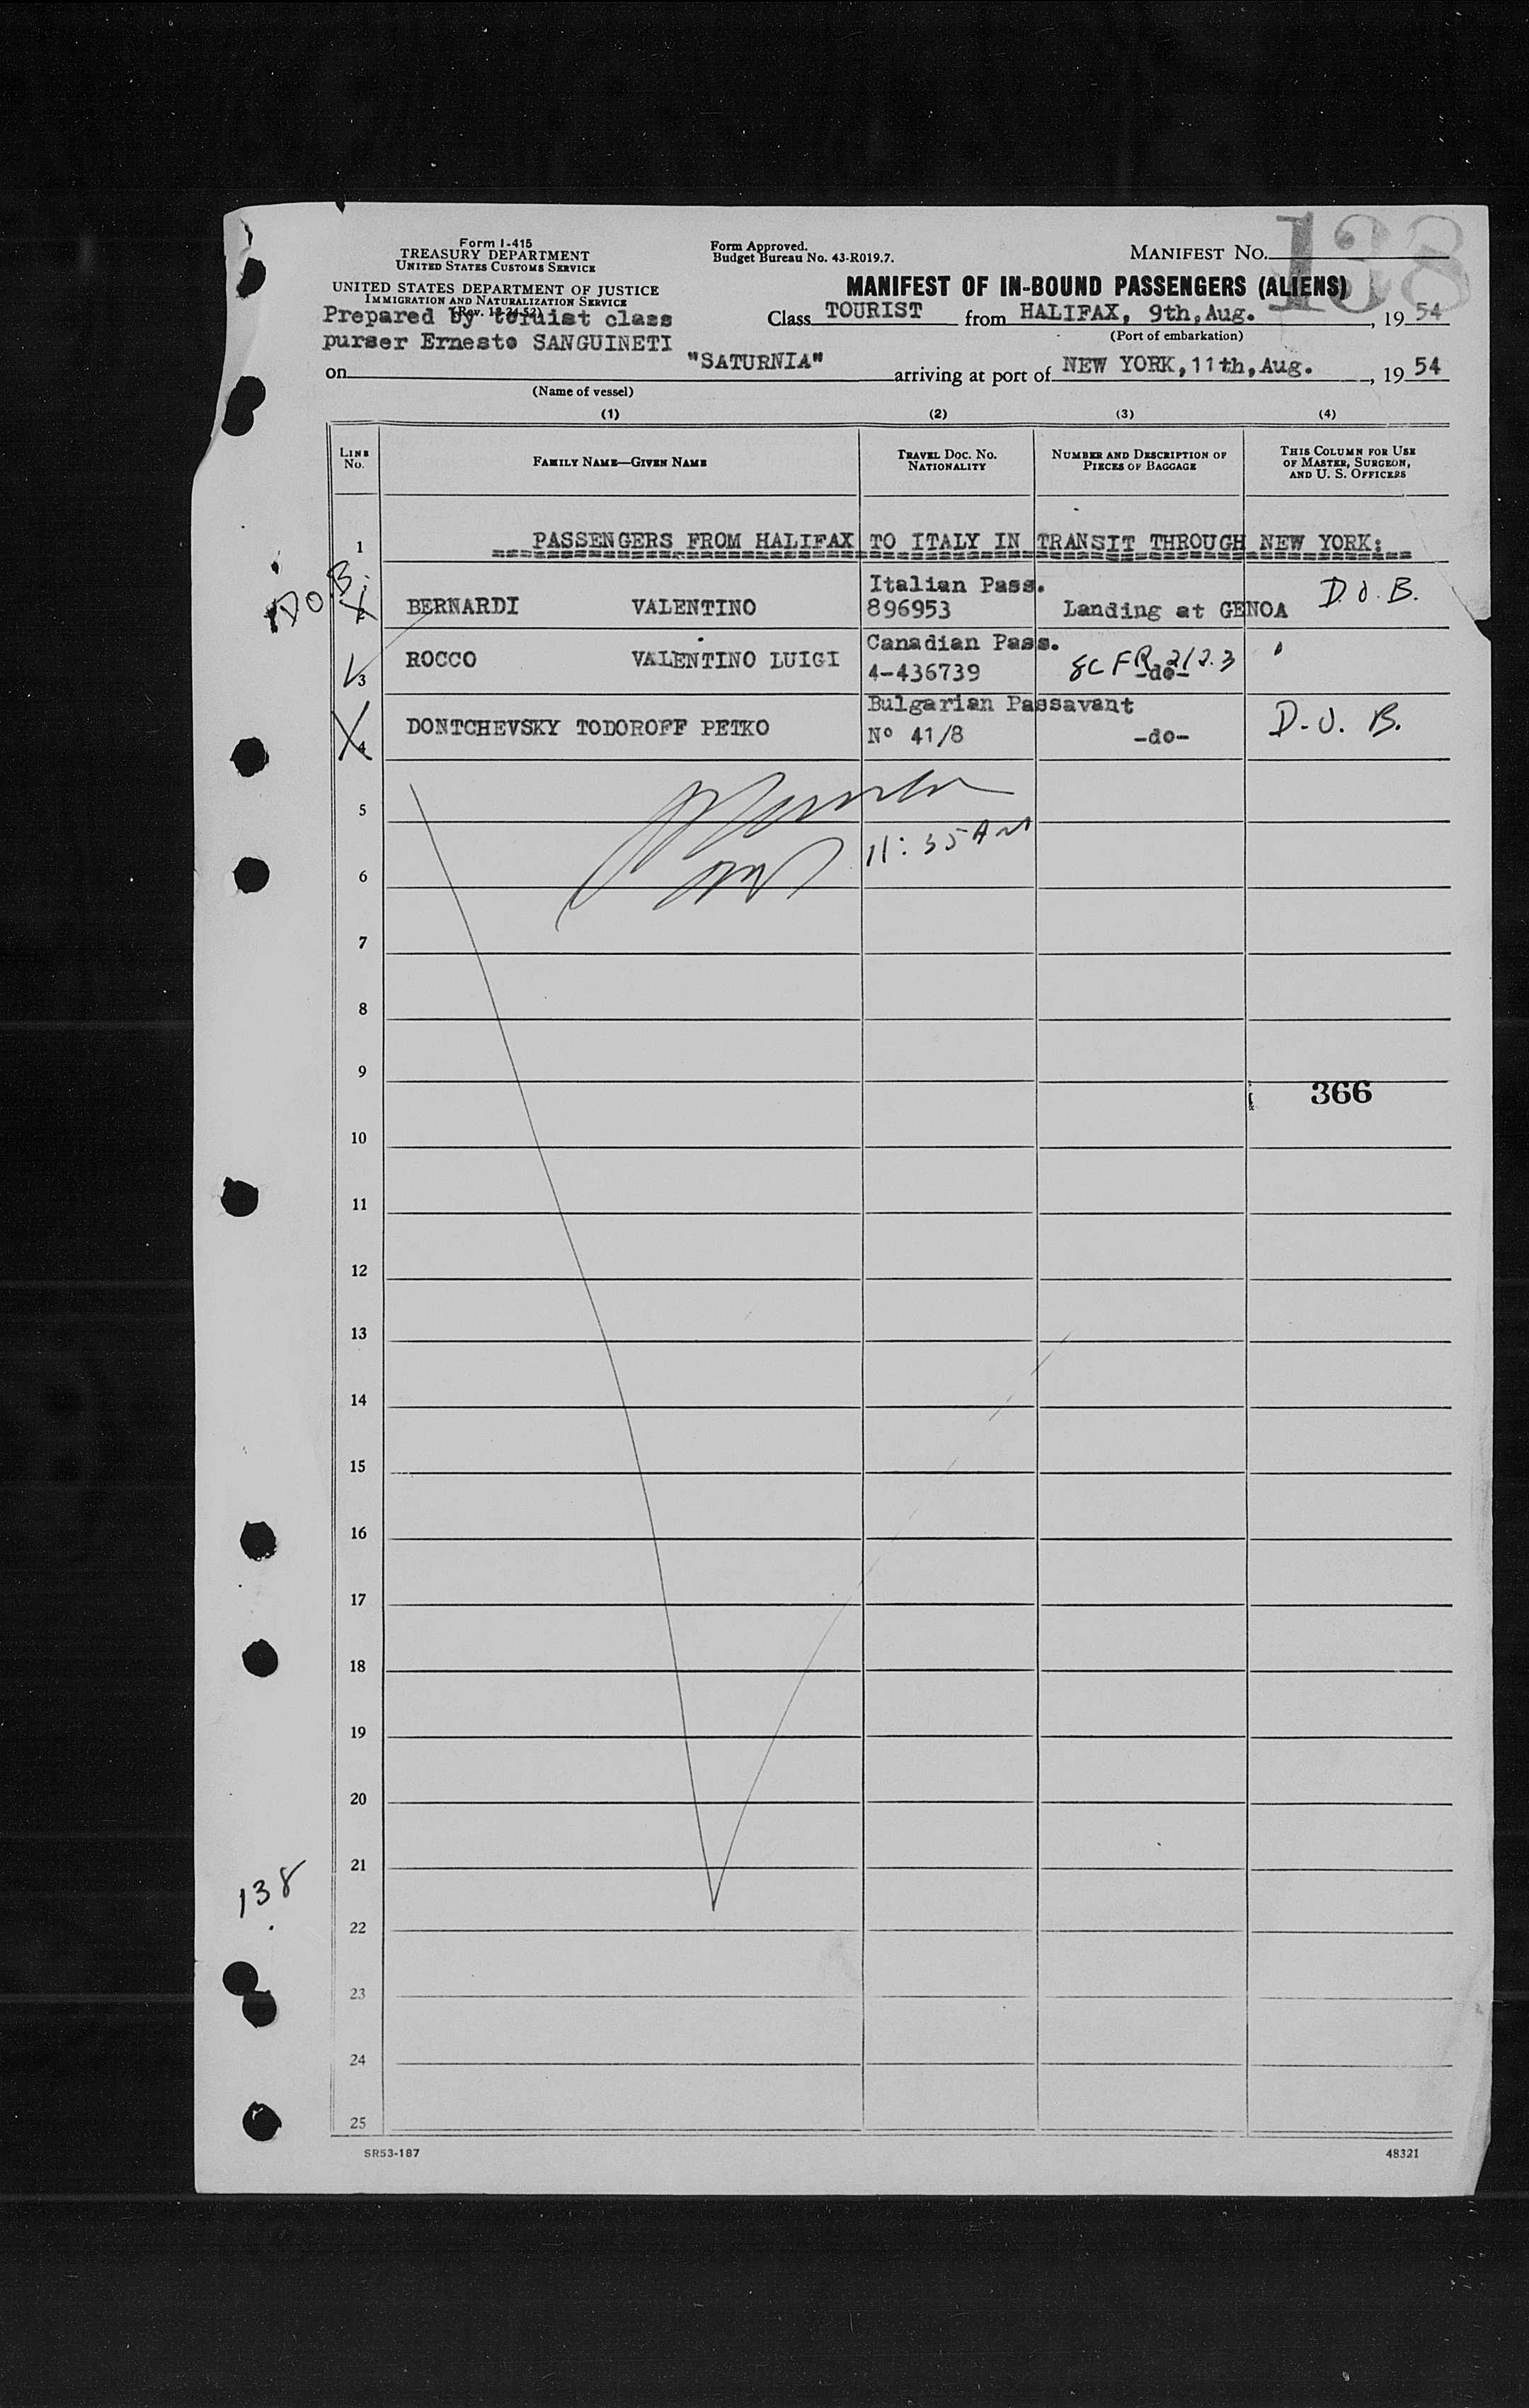 138
Form I-415
TREASURY DEPARTMENT
UNITED STATES CUSTOMS SERVICE
Form Approved.
Budget Bureau No. 43-R019.7.
MANIFEST NO.
UNITED STATES DEPARTMENT OF JUSTICE
IMMIGRATION AND NATURALIZATION SERVICE
MANIFEST OF IN-BOUND PASSENGERS (ALIENS)
Prepared by toruist class
purser Ernesto SANGUINETI
Class TOURIST from HALIFAX, 9th,Aug. , 19 54
(Port of embarkation)
on "SATURNIA" arriving at port of NEW YORK, 11th,Aug. , 19 54
(Name of vessel)
(1) (2) (3) (4)
LINE No. FAMILY NAME—GIVEN NAME TRAVEL DOC. NO. NATIONALITY NUMBER AND DESCRIPTION OF PIECES OF BAGGAGE THIS COLUMN FOR USE OF MASTER, SURGEON, AND U. S. OFFICERS
1 PASSENGERS FROM HALIFAX TO ITALY IN TRANSIT THROUGH NEW YORK:
D.O.B. Italian Pass.
BERNARDI VALENTINO 896953 Landing at GENOA D.O.B.
Canadian Pass.
3 ROCCO VALENTINO LUIGI 4-436739 8CFR 212.3 -do- "
Bulgarian Passavant
4 DONTCHEVSKY TODOROFF PETKO Nº 41/8 -do- D.O.B.
5
11:35 AM
6
7
8
9
366
10
11
12
13
14
15
16
17
18
19
20
21
138
22
23
24
25
SR53-187 48321